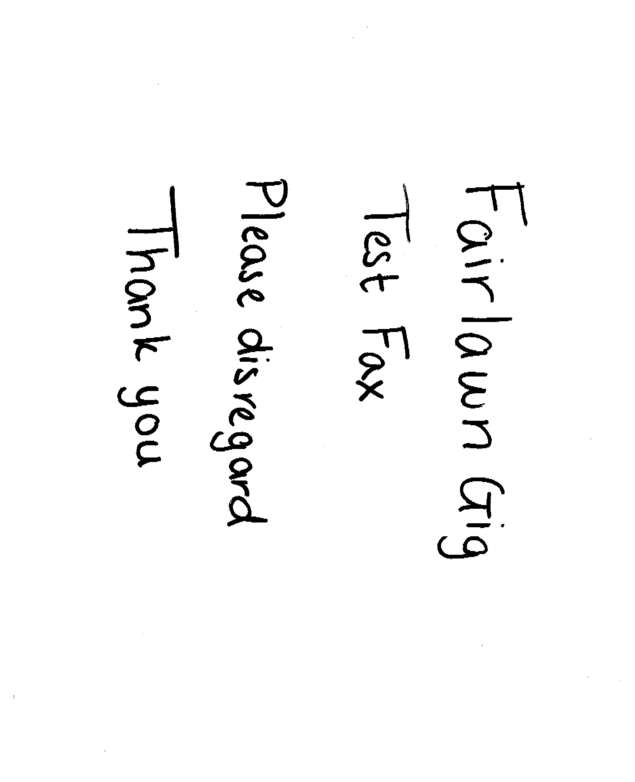 Fairlawn Gig
Test Fax
Please disregard
Thank you